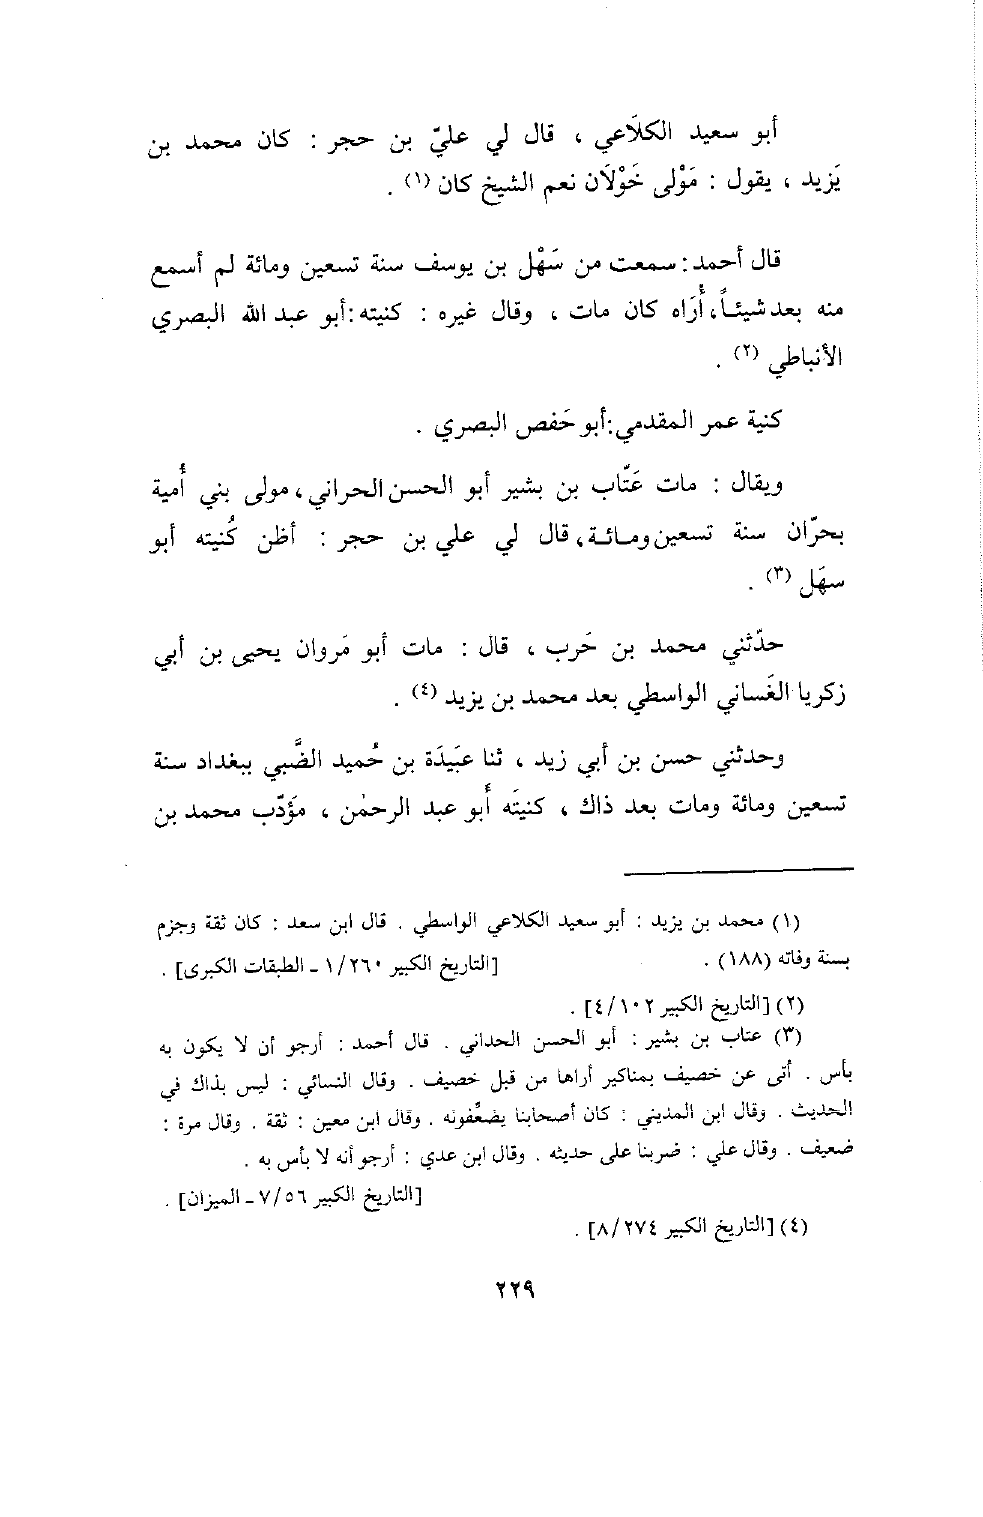 أبو سعيد الكلَاعي ، قال لي عليّ بن حجر : كان محمد بن
يَزيد ، يقول : مَوْلى خَوْلَان نعم الشيخ كان (١) .
قال أحمد : سمعت من سَهْل بن يوسف سنة تسعين ومائة لم أسمع
منه بعد شيئاً ، أُرَاه كان مات ، وقال غيره : كنيته : أبو عبد الله البصري
الأنباطي (٢) .
كنية عمر المقدمي : أبو حَفص البصري .
ويقال : مات عَتّاب بن بشير أبو الحسن الحراني ، مولى بني أُمية
بحرّان سنة تسعين ومائة ، قال لي علي بن حجر : أظن كُنيته أبو
سهَل (٣) .
حدّثني محمد بن حَرب ، قال : مات أبو مَروان يحيى بن أبي
زكريا الغَساني الواسطي بعد محمد بن يزيد (٤) .
وحدثني حسن بن أبي زيد ، ثنا عبَيدَة بن حُميد الضَّبي ببغداد سنة
تسعين ومائة ومات بعد ذاك ، كنيتَه أبو عبد الرحمٰن ، مؤَدّب محمد بن
(١) محمد بن يزيد : أبو سعيد الكلاعي الواسطي . قال ابن سعد : كان ثقة وجزم
بسنة وفاته (١٨٨) . [التاريخ الكبير ١/٢٦٠ ـ الطبقات الكبرى] .
(٢) [التاريخ الكبير ٤/١٠٢] .
(٣) عتاب بن بشير : أبو الحسن الحداني . قال أحمد : أرجو أن لا يكون به
بأس . أتى عن خصيف بمناكير أراها من قبل خصيف . وقال النسائي : ليس بذاك في
الحديث . وقال ابن المديني : كان أصحابنا يضعِّفونه . وقال ابن معين : ثقة . وقال مرة :
ضعيف . وقال علي : ضربنا على حديثه . وقال ابن عدي : أرجو أنه لا بأس به .
[التاريخ الكبير ٧/٥٦ ـ الميزان] .
(٤) [التاريخ الكبير ٨/٢٧٤] .
٢٢٩